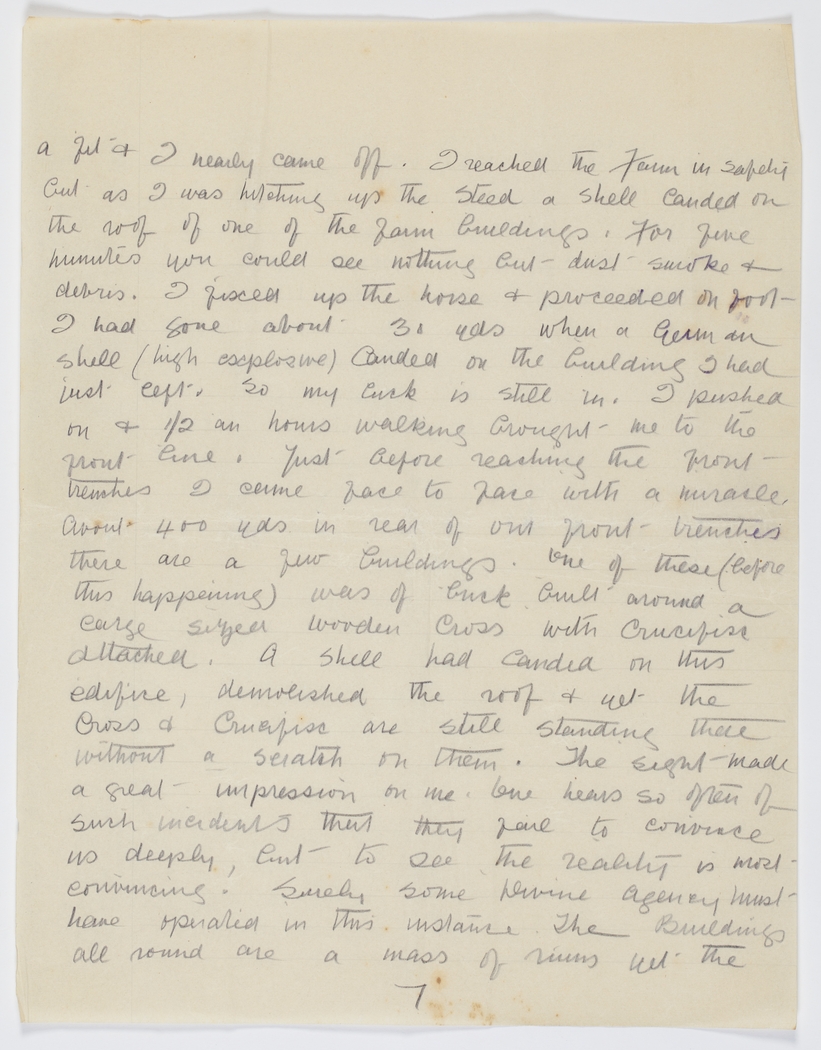 a fit & I nearly came off. I reached the Farm in safety
but as I was hitching up the steed a shell landed on
the roof of one of the farm buildings. For five
minutes you could see nothing but dust smoke &
debris. I fixed up the horse & proceeded on foot
I had gone about 30 yds when a German
shell (high explosive) landed on the building I had
just left. So my luck is still in. I pushed
on & 1/2 an hours walking brought me to the
front line. Just before reaching the front
trenches I came face to face with a miracle.
About 400 yds in rear of our front trenches
there are a few buildings. One of these (before
this happening) was of brick built around a
large sized wooden Cross with Crucifix
attached. A shell had landed on this
edifice, demolished the roof & yet the
Cross & Crucifix are still standing there
without a scratch on them. The sight made
a great impression on me. One hears so often of
such incidents that they fail to convince
us deeply, but to see the reality is most
convincing. Surely some Divine Agency must
have operated in this instance. The Buildings
all round are a mass of ruins yet the
7